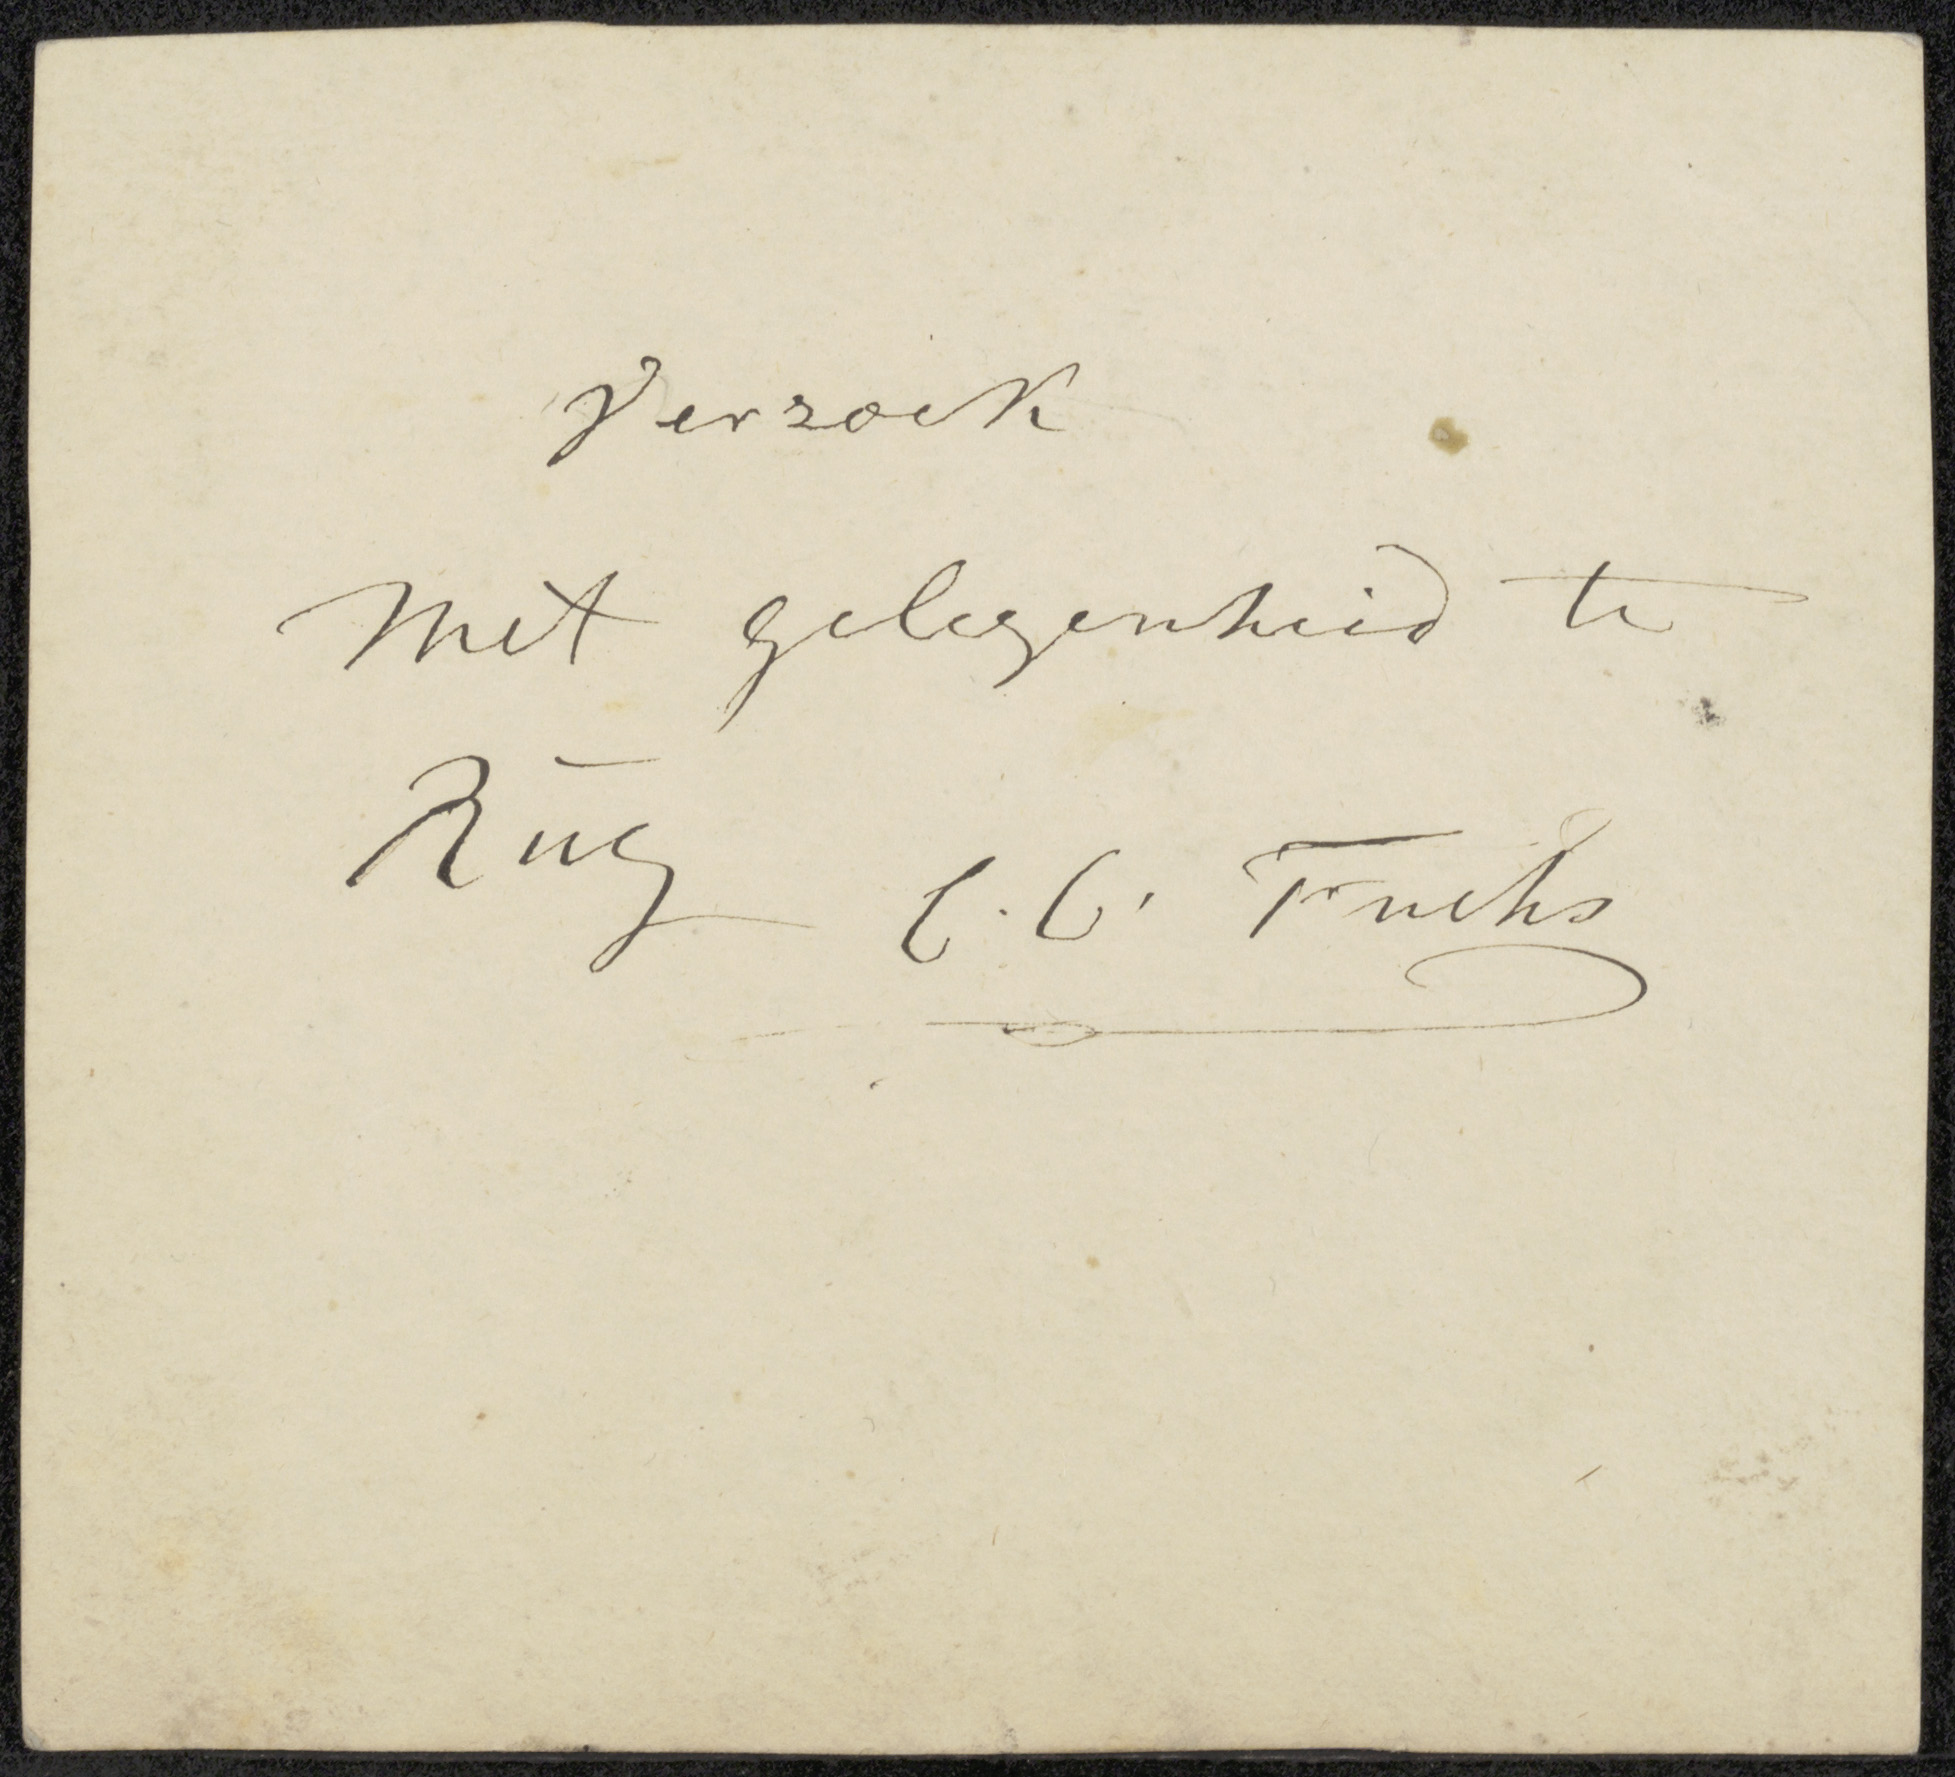 Verzoek
Met gelegenheid te
Rug
C. C. Fuchs